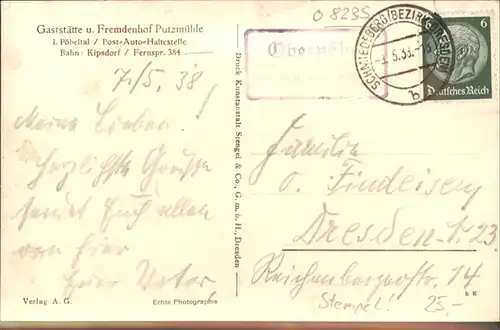 Gaststätte u. Fremdenhof Putzmühle
i. Pöbeltal / Post-Auto-Haltestelle
Bahn: Kipsdorf / Fernspr. 384
7/5. 38
Meine Lieben.
Herzlichste Grüsse
sendet Euch allen
von hier
Euer Vater
Verlag A. G.
Echte Photographie
Druck Kunstanstalt Stengel & Co., G. m. b. H., Dresden
O 8235
SCHMIEDEBERG (BEZIRK DRESDEN)
b
6
Deutsches Reich
Familie
O. Findeisen
Dresden-N. 23
Reichenbergerstr. 14
Stempel! 25,-